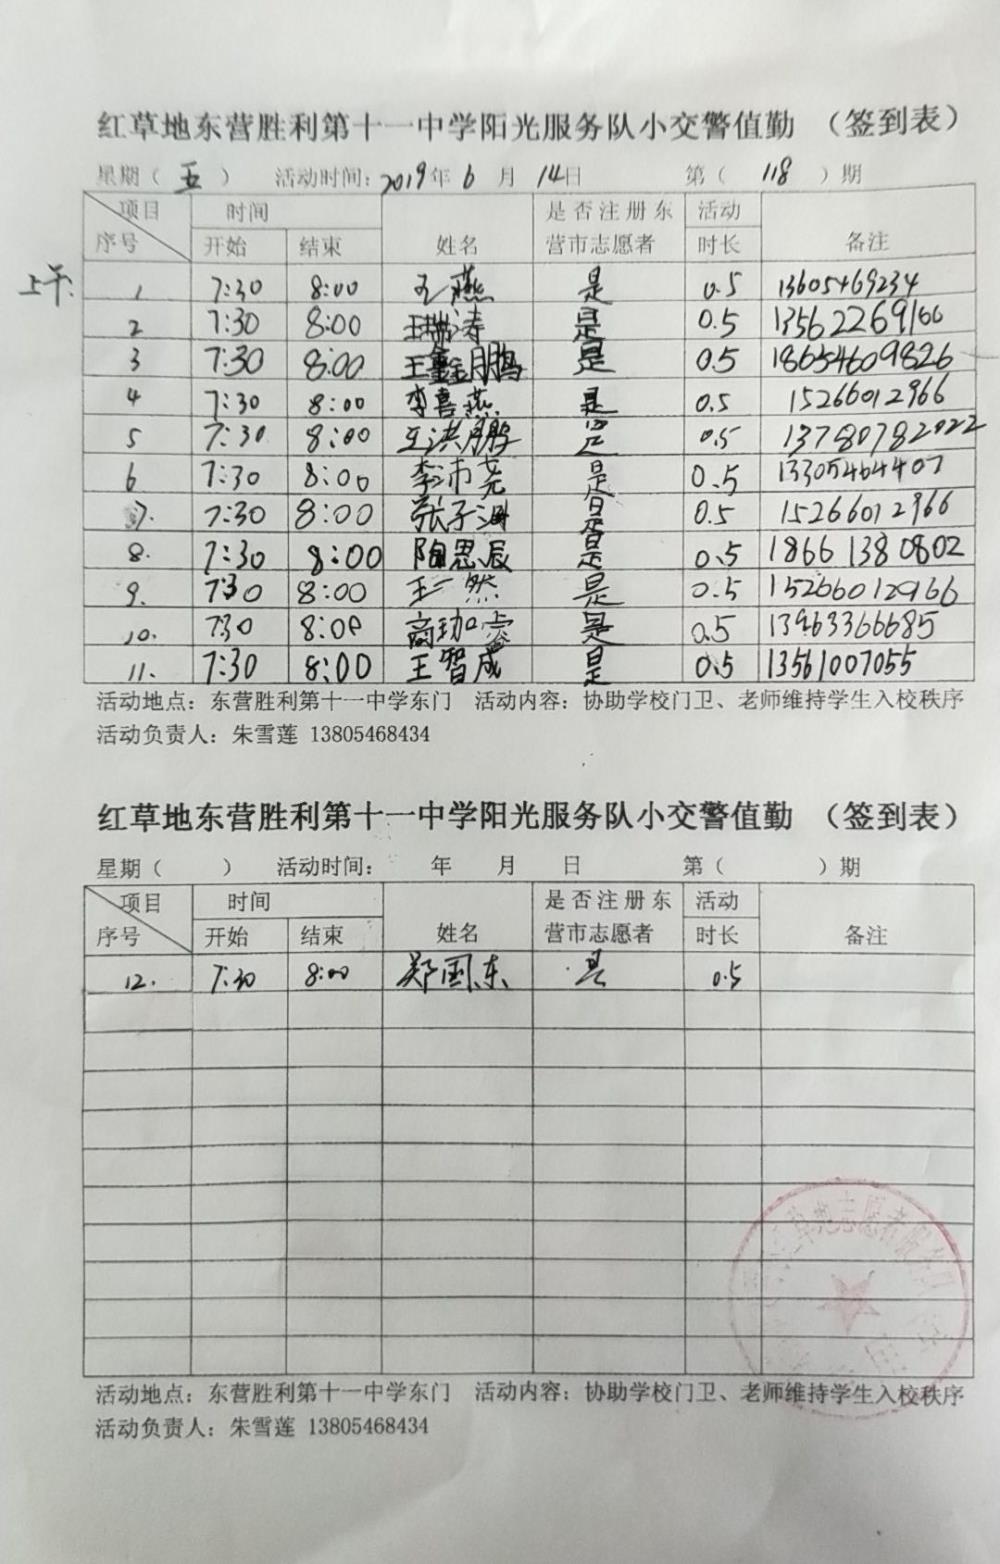 红草地东营胜利第十一中学阳光服务队小交警值勤 （签到表）
星期（ 五 ） 活动时间：2019年 6 月 14日 第（ 118 ）期
项目 时间 是否注册东 活动
序号 开始 结束 姓名 营市志愿者 时长 备注
上午：
1 7:30 8:00 王燕 是 0.5 13605469234
2 7:30 8:00 王瑞涛 是 0.5 13562269166
3 7:30 8:00 王鑫鹏 是 0.5 18654609826
4 7:30 8:00 李喜燕 是 0.5 15266012966
5 7:30 8:00 王洪鹏 是 0.5 13780782022
6 7:30 8:00 李沛尧 是 0.5 13305464407
7. 7:30 8:00 张子 是 0.5 15266012966
8. 7:30 8:00 陶思辰 是 0.5 18661380802
9. 7:30 8:00 王一然 是 0.5 15266012966
10. 7:30 8:00 商珈睿 是 0.5 13963366685
11. 7:30 8:00 王智成 是 0.5 13561007055
活动地点：东营胜利第十一中学东门 活动内容：协助学校门卫、老师维持学生入校秩序
活动负责人：朱雪莲 13805468434
红草地东营胜利第十一中学阳光服务队小交警值勤 （签到表）
星期（ ） 活动时间： 年 月 日 第（ ）期
项目 时间 是否注册东 活动
序号 开始 结束 姓名 营市志愿者 时长 备注
12. 7:30 8:00 郑国东 是 0.5
草地志愿者服务
活动地点：东营胜利第十一中学东门 活动内容：协助学校门卫、老师维持学生入校秩序
活动负责人：朱雪莲 13805468434